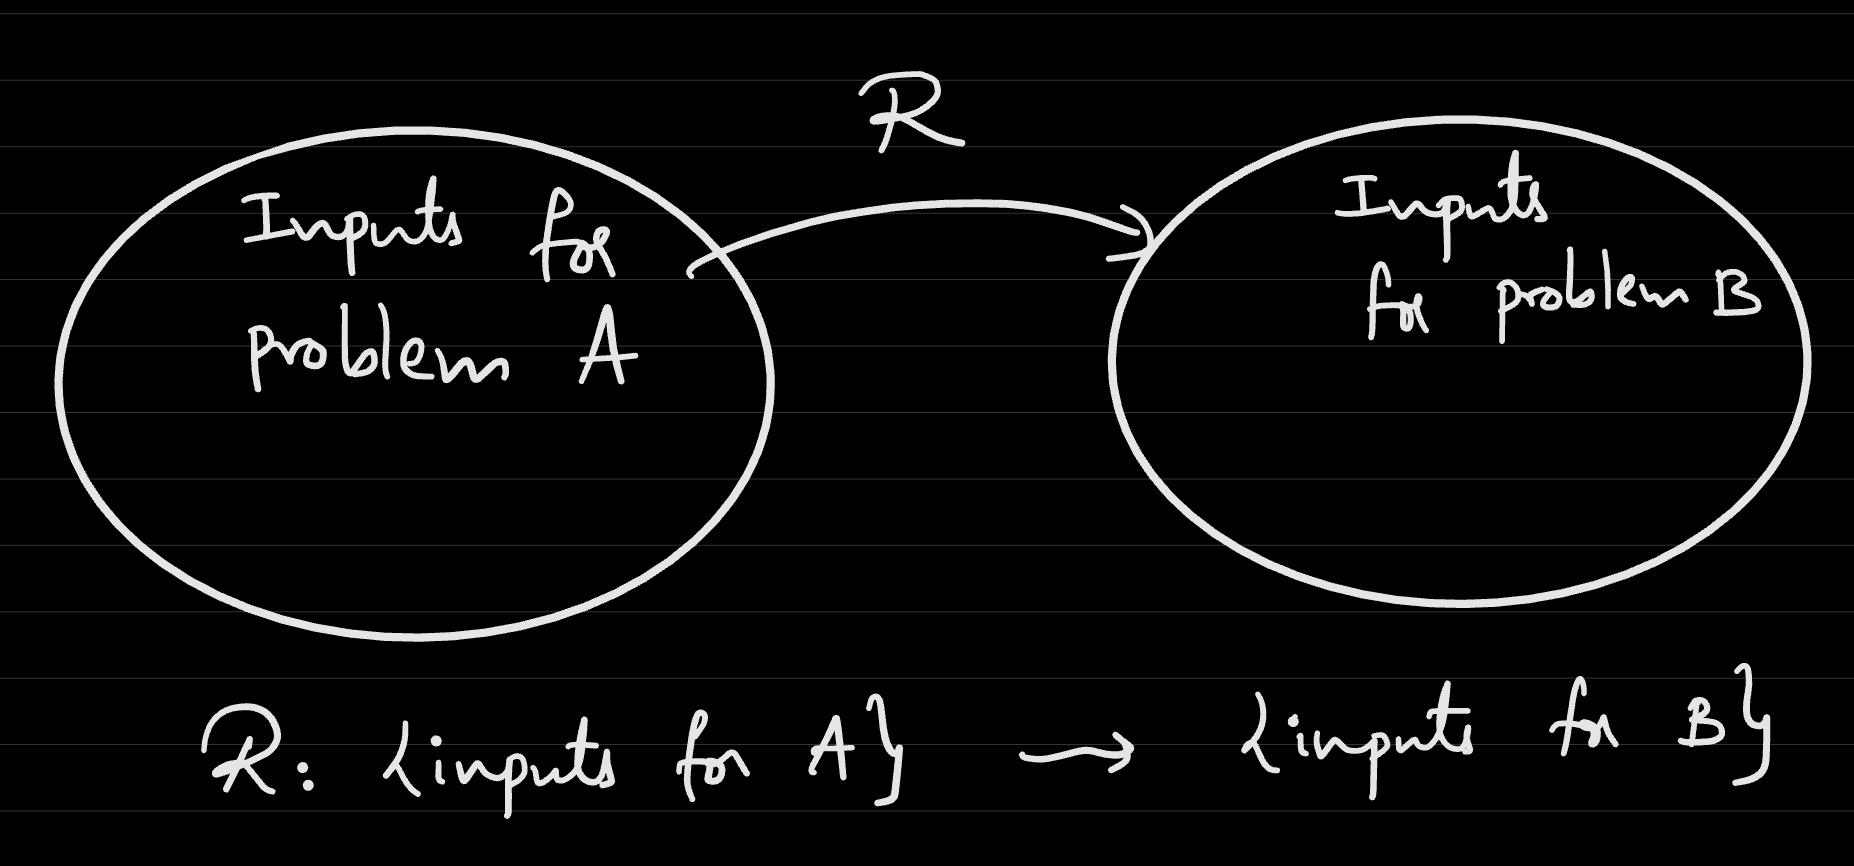 R
Inputs for
problem A
Inputs
for problem B
R: {inputs for A} → {inputs for B}